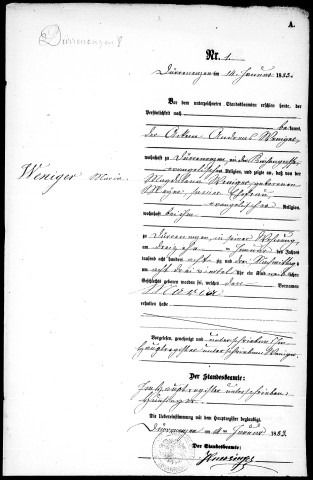 A.
Dürrenenzen
Nr. 1.
Dürrenenzen am 14. Januar 1883.
Vor dem unterzeichneten Standesbeamten erschien heute, der
Persönlichkeit nach
be kannt,
der Ackerer Andreas Weniger,
wohnhaft zu Dürrenenzen,
evangelischer Religion, und zeigte an, daß von der
Magdalena Weniger, geborenen
Meyer, seiner Ehefrau,
evangelischer Religion,
wohnhaft bei ihm,
Weniger Maria
zu Dürrenenzen, in seiner Wohnung,
am dreizehn Januar des Jahres
tausend acht hundert achtzig und drei Nachmittags
um acht drei viertel Uhr ein Kind weib liches
Geschlechts geboren worden sei, welches den Vornamen
Maria
erhalten habe
Vorgelesen, genehmigt und unterschrieben im
Hauptregister unterschrieben Weniger.
Der Standesbeamte:
Im Hauptregister unterschrieben:
Die Uebereinstimmung mit dem Hauptregister beglaubigt
Dürrenenzen am 14. Januar 1883.
Der Standesbeamte: